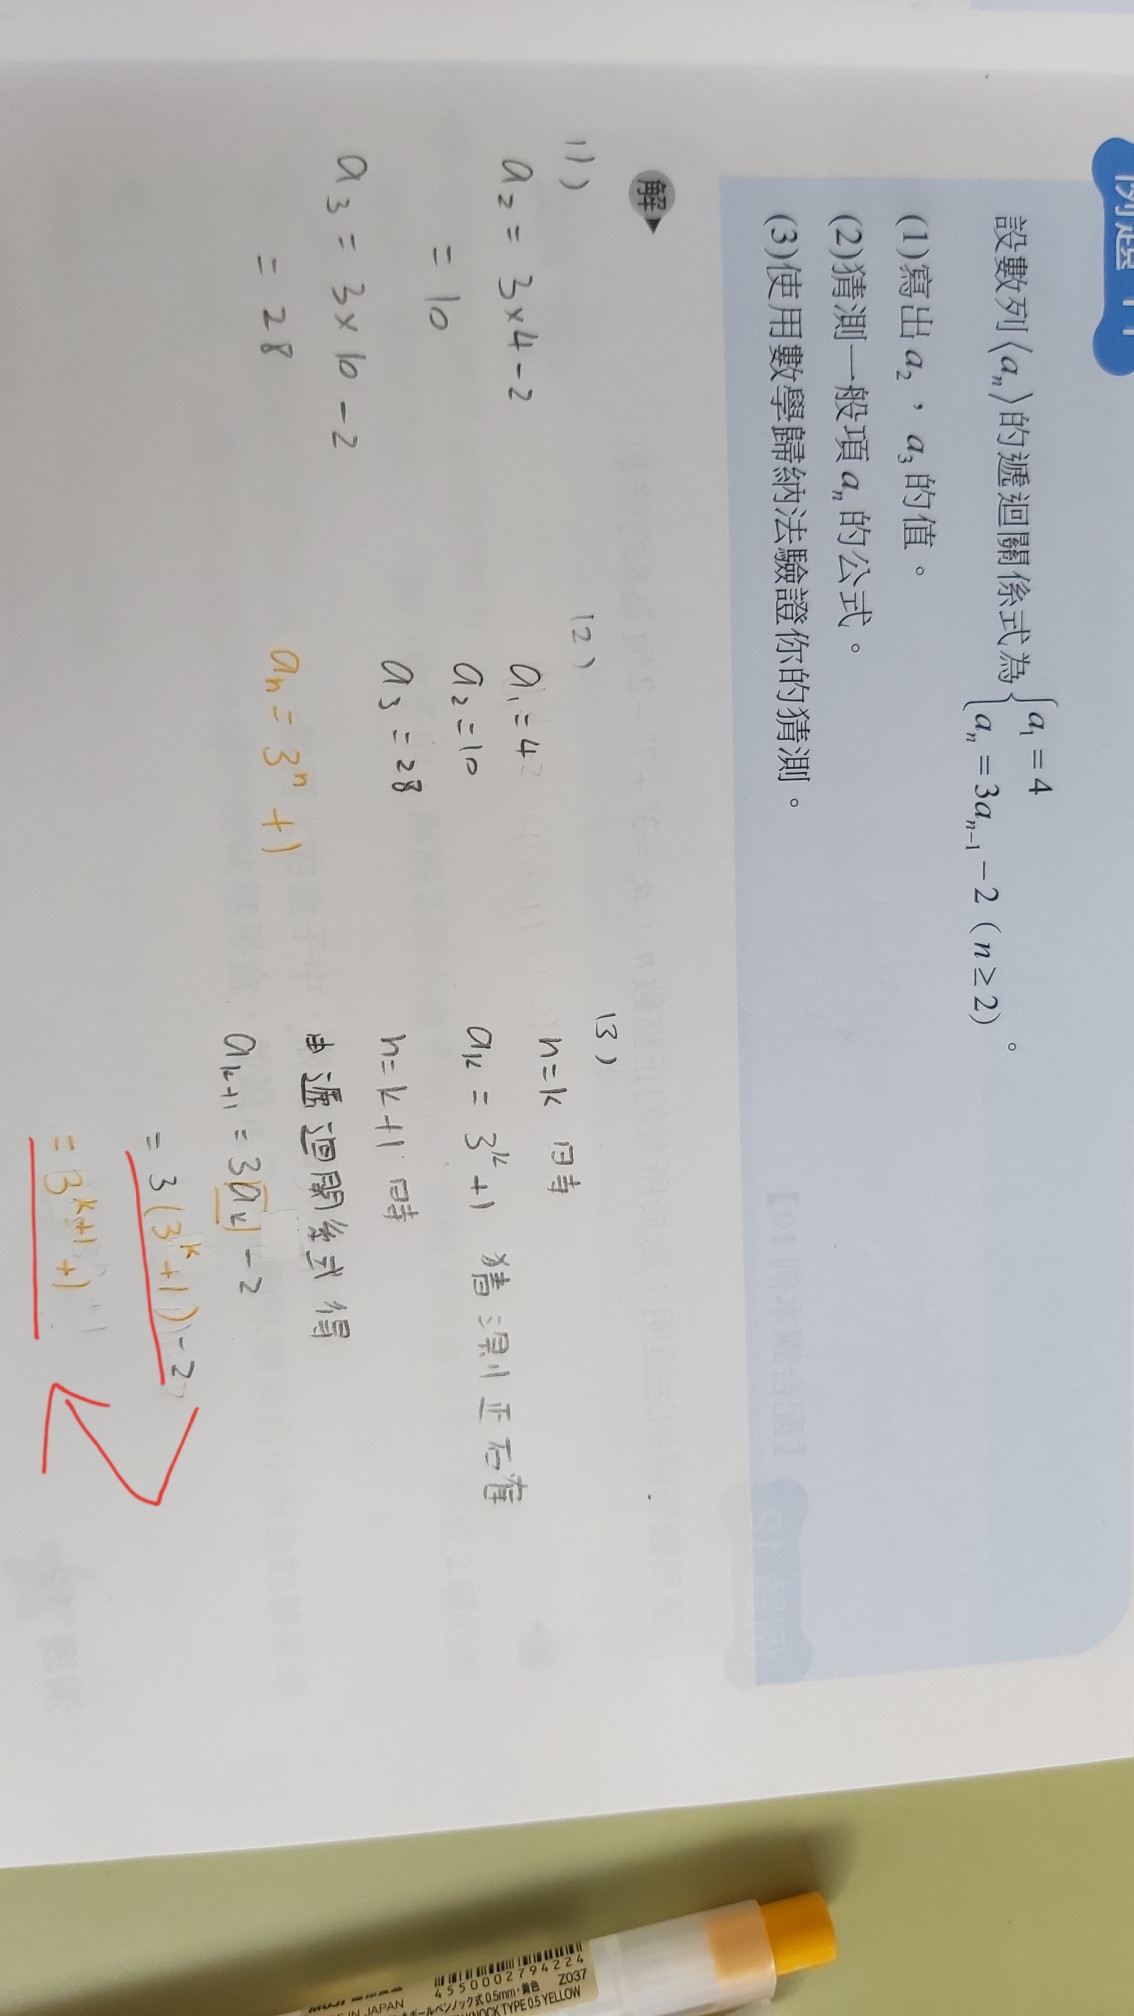 例題 11
設數列⟨aₙ⟩的遞迴關係式為{a₁=4
aₙ=3aₙ₋₁-2(n≥2)。
(1)寫出a₂,a₃的值。
(2)猜測一般項aₙ的公式。
(3)使用數學歸納法驗證你的猜測。
解
(1)
a₂=3×4-2
=10
a₃=3×10-2
=28
(2)
a₁=4
a₂=10
a₃=28
aₙ=3ⁿ+1
(3)
n=k 時
aₖ=3ᵏ+1 猜測正確
n=k+1 時
由遞迴關係式得
aₖ₊₁=3aₖ-2
=3(3ᵏ+1)-2
=3ᵏ⁺¹+1
4550002794224
Z037
IN JAPAN
ボールペン/ノック式0.5mm・黄色
KNOCK TYPE 0.5 YELLOW